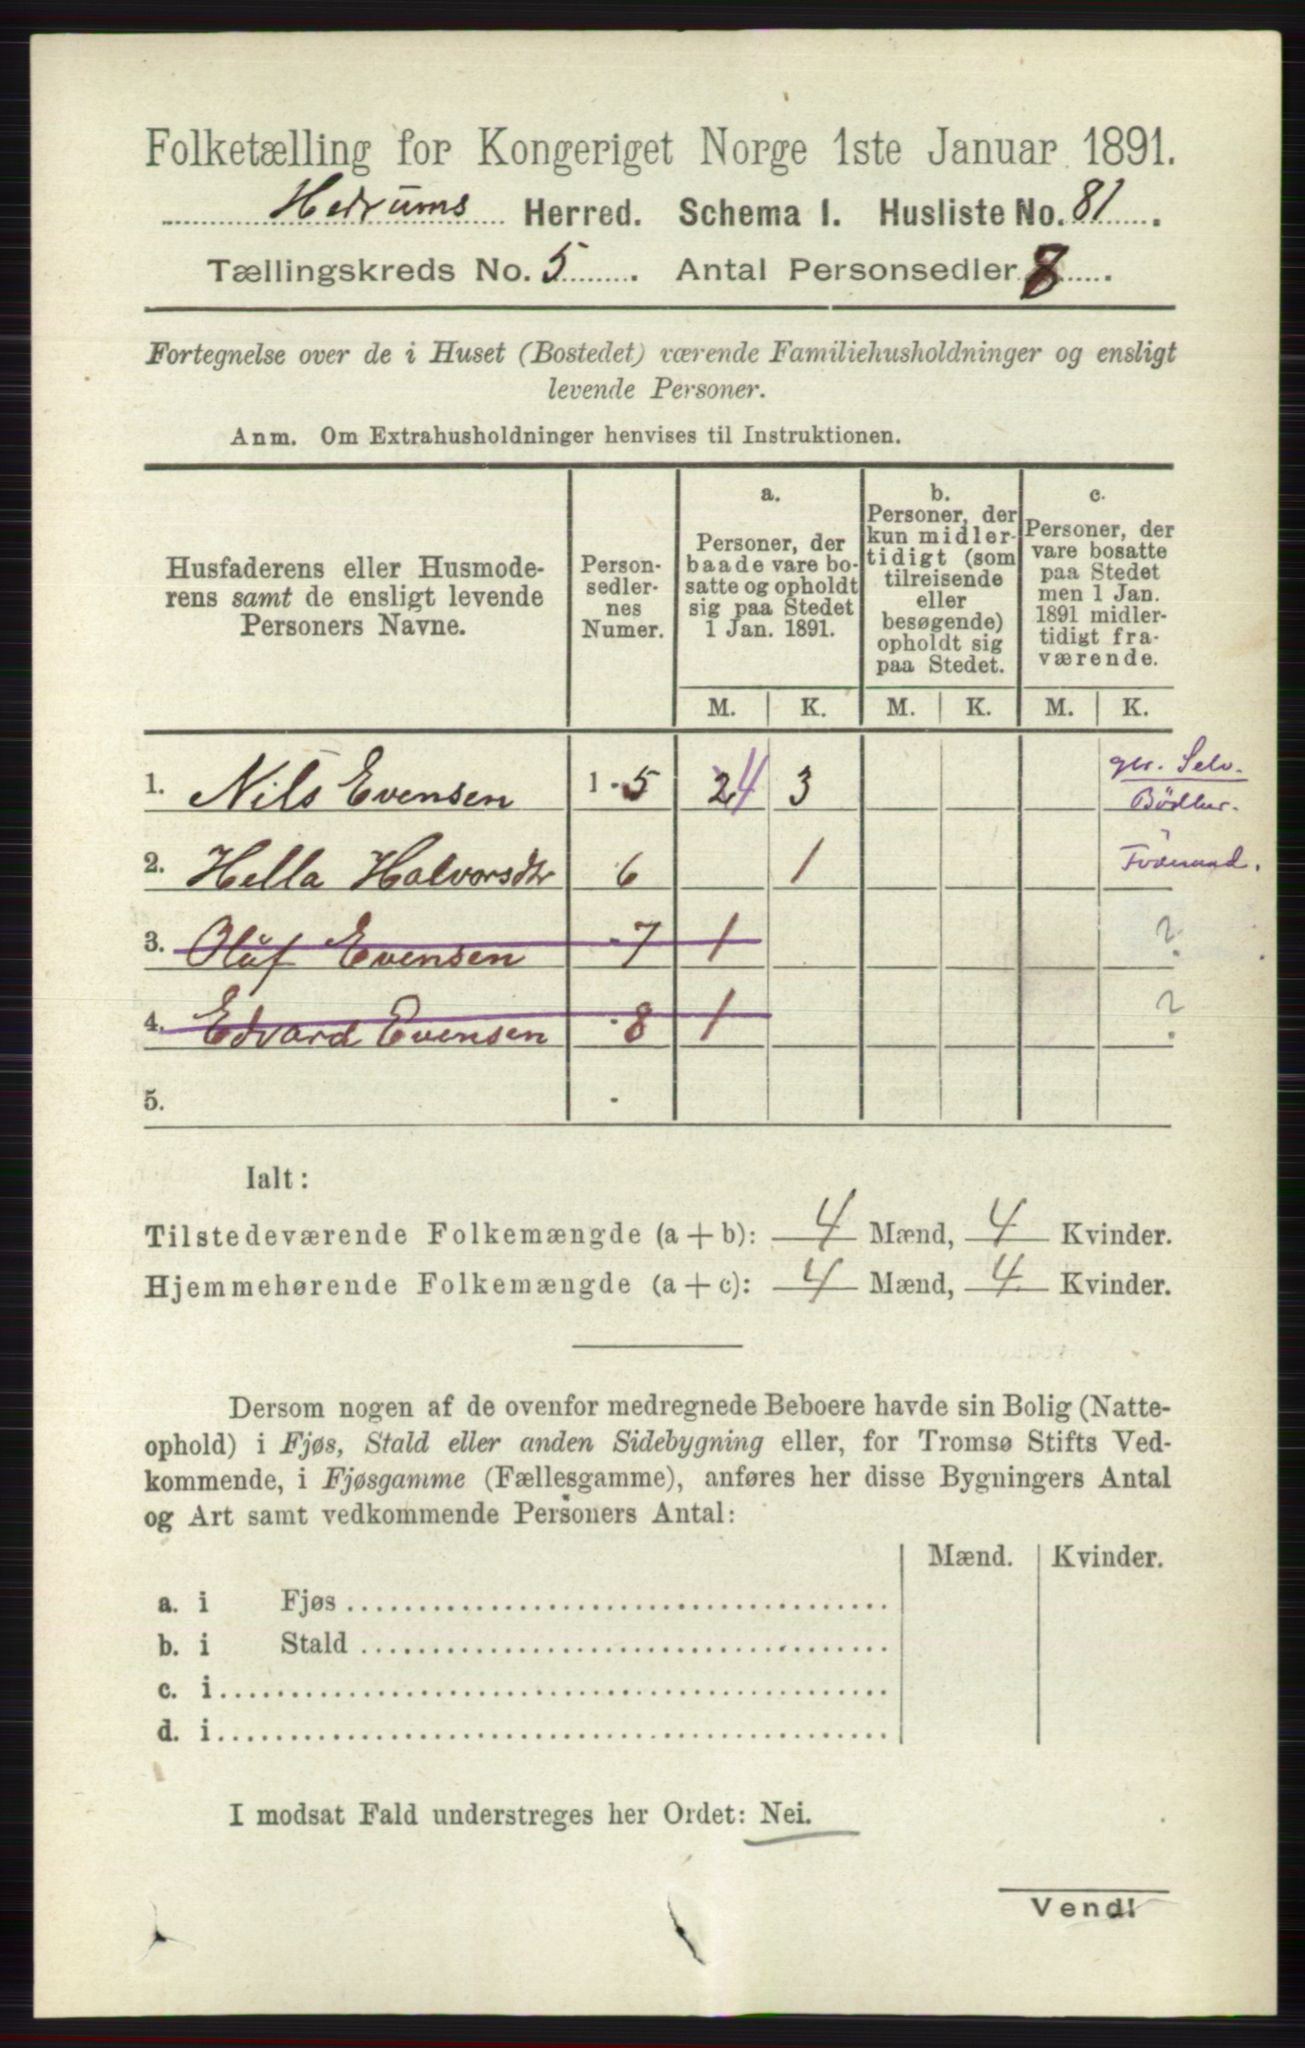 Folketælling for Kongeriget Norge 1ste Januar 1891.
Hedrums Herred. Schema 1. Husliste No. 81.
Tællingskreds No. 5. Antal Personsedler 8.
Fortegnelse over de i Huset (Bostedet) værende Familiehusholdninger og ensligt
levende Personer.
Anm. Om Extrahusholdninger henvises til Instruktionen.
Husfaderens eller Husmode-
rens samt de ensligt levende
Personers Navne.
Person-
sedler-
nes
Numer.
a.
Personer, der
baade vare bo-
satte og opholdt
sig paa Stedet
1 Jan. 1891.
b.
Personer, der
kun midler-
tidigt (som
tilreisende
eller
besøgende)
opholdt sig
paa Stedet.
c.
Personer, der
vare bosatte
paa Stedet
men 1 Jan.
1891 midler-
tidigt fra-
værende.
M. K. M. K. M. K.
1. Nils Evensen 1-5 2 4 3 Selv.
2. Hella Halvorsdtr 6 1
3. Oluf Evensen -7 1 ?
4. Edvard Evensen -8 1 ?
5. -
Ialt:
Tilstedeværende Folkemængde (a + b): 4 Mænd, 4 Kvinder.
Hjemmehørende Folkemængde (a + c): 4 Mænd, 4 Kvinder.
Dersom nogen af de ovenfor medregnede Beboere havde sin Bolig (Natte-
ophold) i Fjøs, Stald eller anden Sidebygning eller, for Tromsø Stifts Ved-
kommende, i Fjøsgamme (Fællesgamme), anføres her disse Bygningers Antal
og Art samt vedkommende Personers Antal:
Mænd. Kvinder.
a. i Fjøs
b. i Stald
c. i
d. i
I modsat Fald understreges her Ordet: Nei.
Vend!